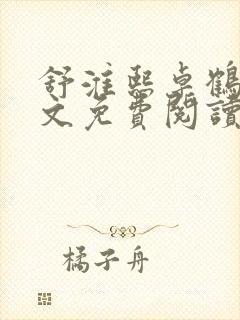 舒淮熙卓鶴
文免費閱讀
橘子舟